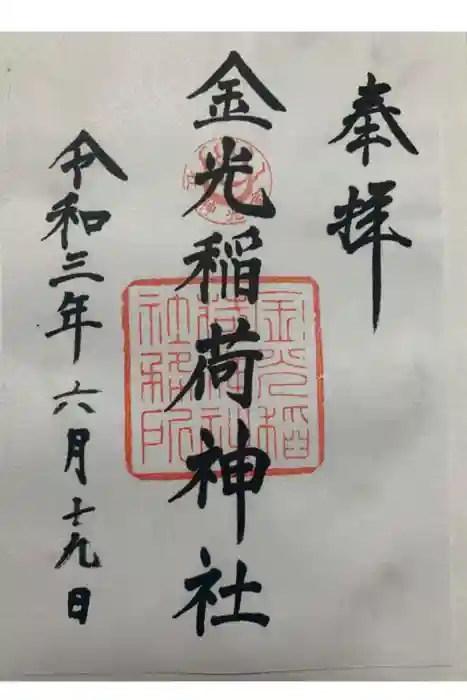 奉拝
金光稲荷神社
令和三年六月十九日
金光稲
荷神社
社務所